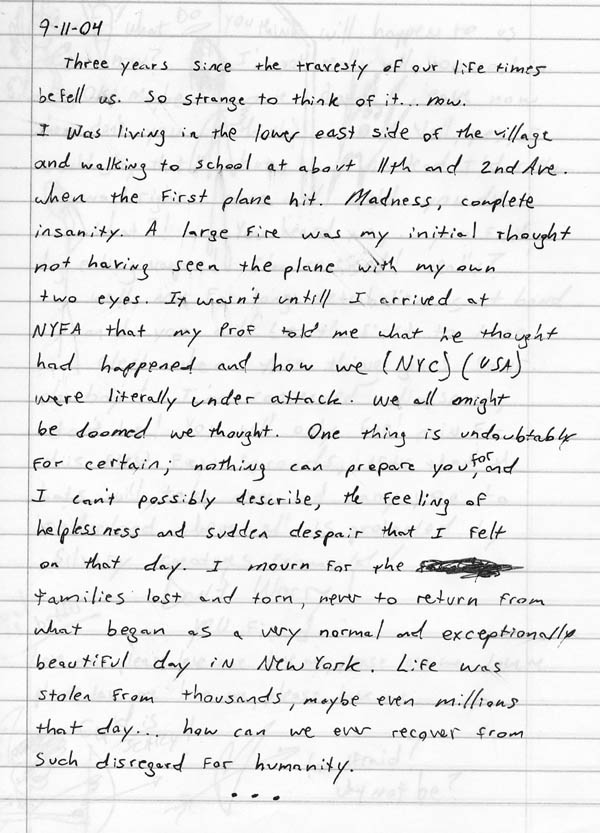 9-11-04
Three years since the travesty of our life times
befell us. So strange to think of it... now.
I was living in the lower east side of the village
and walking to school at about 11th and 2nd Ave.
when the first plane hit. Madness, complete
insanity. A large fire was my initial thought
not having seen the plane with my own
two eyes. It wasn't untill I arrived at
NYFA that my Prof told me what he thought
had happened and how we (NYC) (USA)
were literally under attack. We all might
be doomed we thought. One thing is undoubtably
for certain; nothing can prepare you for, and
I can't possibly describe, the feeling of
helplessness and sudden despair that I felt
on that day. I mourn for the
families lost and torn, never to return from
what began as a very normal and exceptionally
beautiful day in New York. Life was
stolen from thousands, maybe even millions
that day... how can we ever recover from
such disregard for humanity.
...